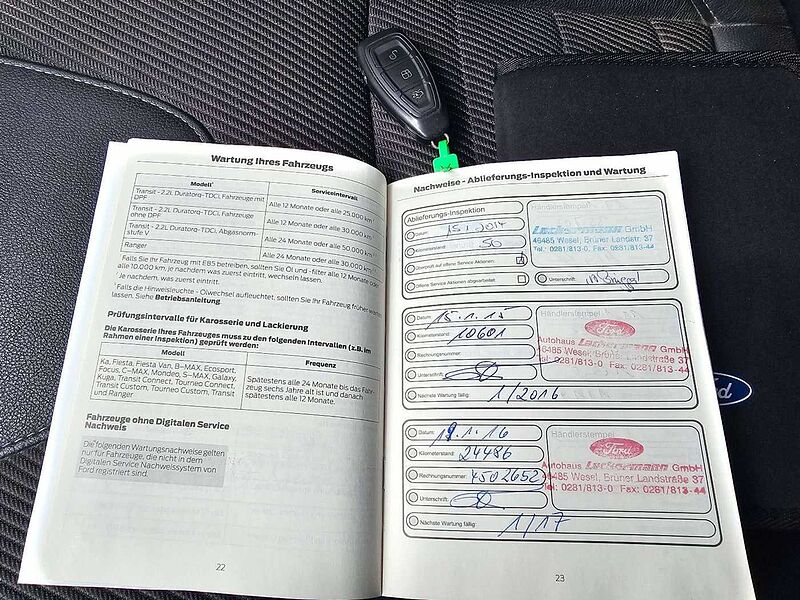 Wartung Ihres Fahrzeugs
Modell*
Serviceintervall
Transit - 2.2L Duratorq-TDCi, Fahrzeuge mit DPF
Alle 12 Monate oder alle 25.000 km
Transit - 2.2L Duratorq-TDCi, Fahrzeuge ohne DPF
Alle 12 Monate oder alle 30.000 km
Transit - 2.2L Duratorq-TDCi, Abgasnorm-
stufe V
Alle 24 Monate oder alle 50.000 km
Ranger
Alle 24 Monate oder alle 30.000 km
Falls Sie Ihr Fahrzeug mit E85 betreiben, sollten Sie Öl und -filter alle 12 Monate oder
alle 10.000 km, je nachdem was zuerst eintritt, wechseln lassen.
Je nachdem, was zuerst eintritt.
Falls die Hinweisleuchte - Ölwechsel aufleuchtet, sollten Sie Ihr Fahrzeug früher warten
lassen. Siehe Betriebsanleitung.
Prüfungsintervalle für Karosserie und Lackierung
Die Karosserie Ihres Fahrzeuges muss zu den folgenden Intervallen (z.B. im
Rahmen einer Inspektion) geprüft werden:
Modell
Frequenz
Ka, Fiesta, Fiesta Van, B-MAX, Ecosport,
Focus, C-MAX, Mondeo, S-MAX, Galaxy,
Kuga, Transit Connect, Tourneo Connect,
Transit Custom, Tourneo Custom, Transit
und Ranger
Spätestens alle 24 Monate bis das Fahr-
zeug sechs Jahre alt ist und danach
spätestens alle 12 Monate.
Fahrzeuge ohne Digitalen Service
Nachweis
Die folgenden Wartungsnachweise gelten
nur für Fahrzeuge, die nicht in dem
Digitalen Service Nachweissystem von
Ford registriert sind.
22
Nachweise - Ablieferungs-Inspektion und Wartung
Ablieferungs-Inspektion
Datum: 15.1.2014
Kilometerstand: 50
Überprüft auf offene Service Aktionen:
Offene Service Aktionen abgearbeitet:
Händlerstempel
Luckermann GmbH
46485 Wesel, Brüner Landstr. 37
Tel. 0281/813-0, Fax: 0281/813-44
Unterschrift:
Datum: 15.1.15
Kilometerstand: 10601
Rechnungsnummer:
Unterschrift:
Nächste Wartung fällig: 1/2016
Händlerstempel
Ford
Autohaus Luckermann GmbH
46485 Wesel, Brüner Landstraße 37
Tel: 0281/813-0 Fax: 0281/813-44
Datum: 19.1.16
Kilometerstand: 24486
Rechnungsnummer: 4502652
Unterschrift:
Nächste Wartung fällig: 1/17
Händlerstempel
Ford
Autohaus Luckermann GmbH
46485 Wesel, Brüner Landstraße 37
Tel: 0281/813-0 Fax: 0281/813-44
23